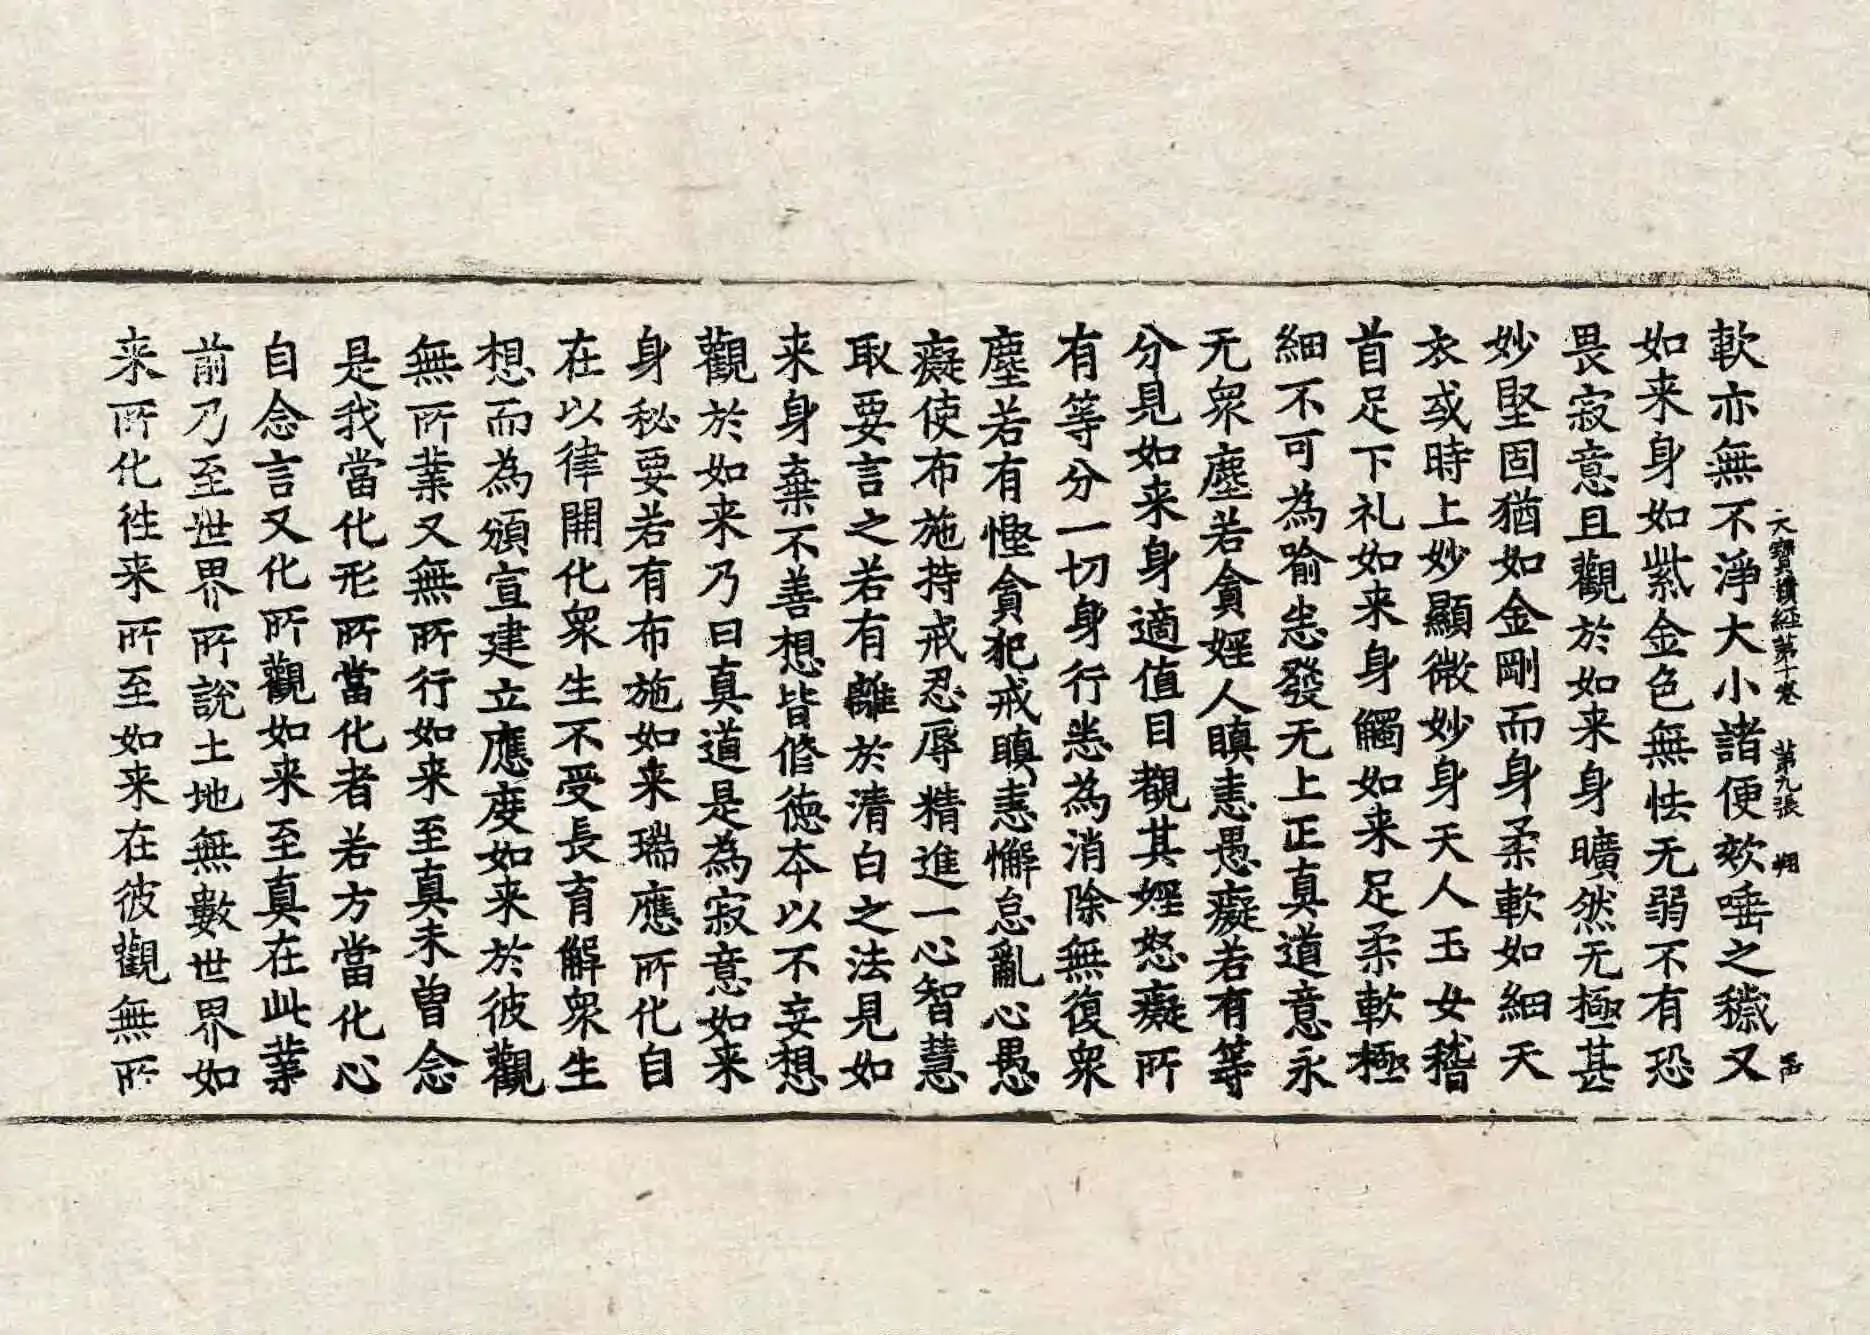 大寶積經第十卷 第九張 翔
軟亦無不淨大小諸便欬唾之穢又
如来身如紫金色無怯无弱不有恐
畏寂意且觀於如来身曠然无極甚
妙堅固猶如金剛而身柔軟如細天
衣或時上妙顯微妙身天人玉女稽
首足下礼如来身觸如来足柔軟極
細不可為喻恙發无上正真道意永
无衆塵若貪婬人瞋恚愚癡若有等
分見如来身適值目覩其婬怒癡所
有等分一切身行恙為消除無復衆
塵若有慳貪犯戒瞋恚懈怠亂心愚
癡使布施持戒忍辱精進一心智慧
取要言之若有離於清白之法見如
来身棄不善想皆修德本以不妄想
觀於如来乃曰真道是為寂意如来
身秘要若有布施如来瑞應所化自
在以律開化衆生不受長育解衆生
想而為頒宣建立應度如来於彼觀
無所業又無所行如来至真未曾念
是我當化形所當化者若方當化心
自念言又化所觀如来至真在此業
前乃至世界所說土地無數世界如
来所化往来所至如来在彼觀無所